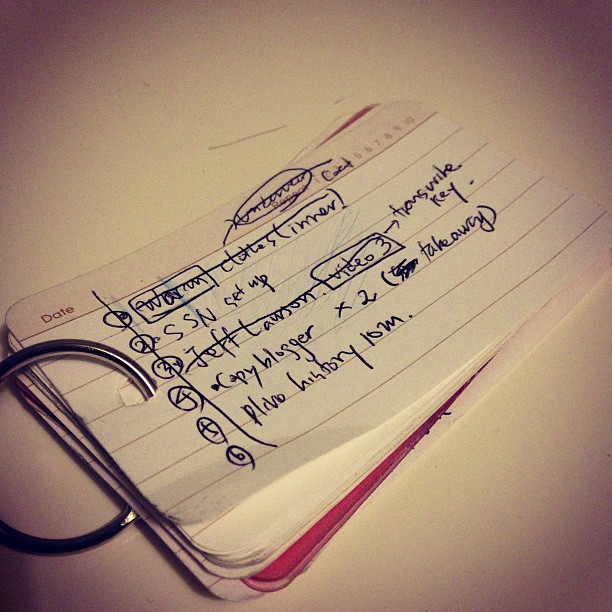 Date
Repeat 5 6 7 8 9 10
Cost
① Warm clothes (inner)
② SSN set up
③ Jeff Lawson. Video 3 → transcribe key.
④ • Copyblogger × 2 ( takeaway)
⑤ Plivo history 10m.
⑥